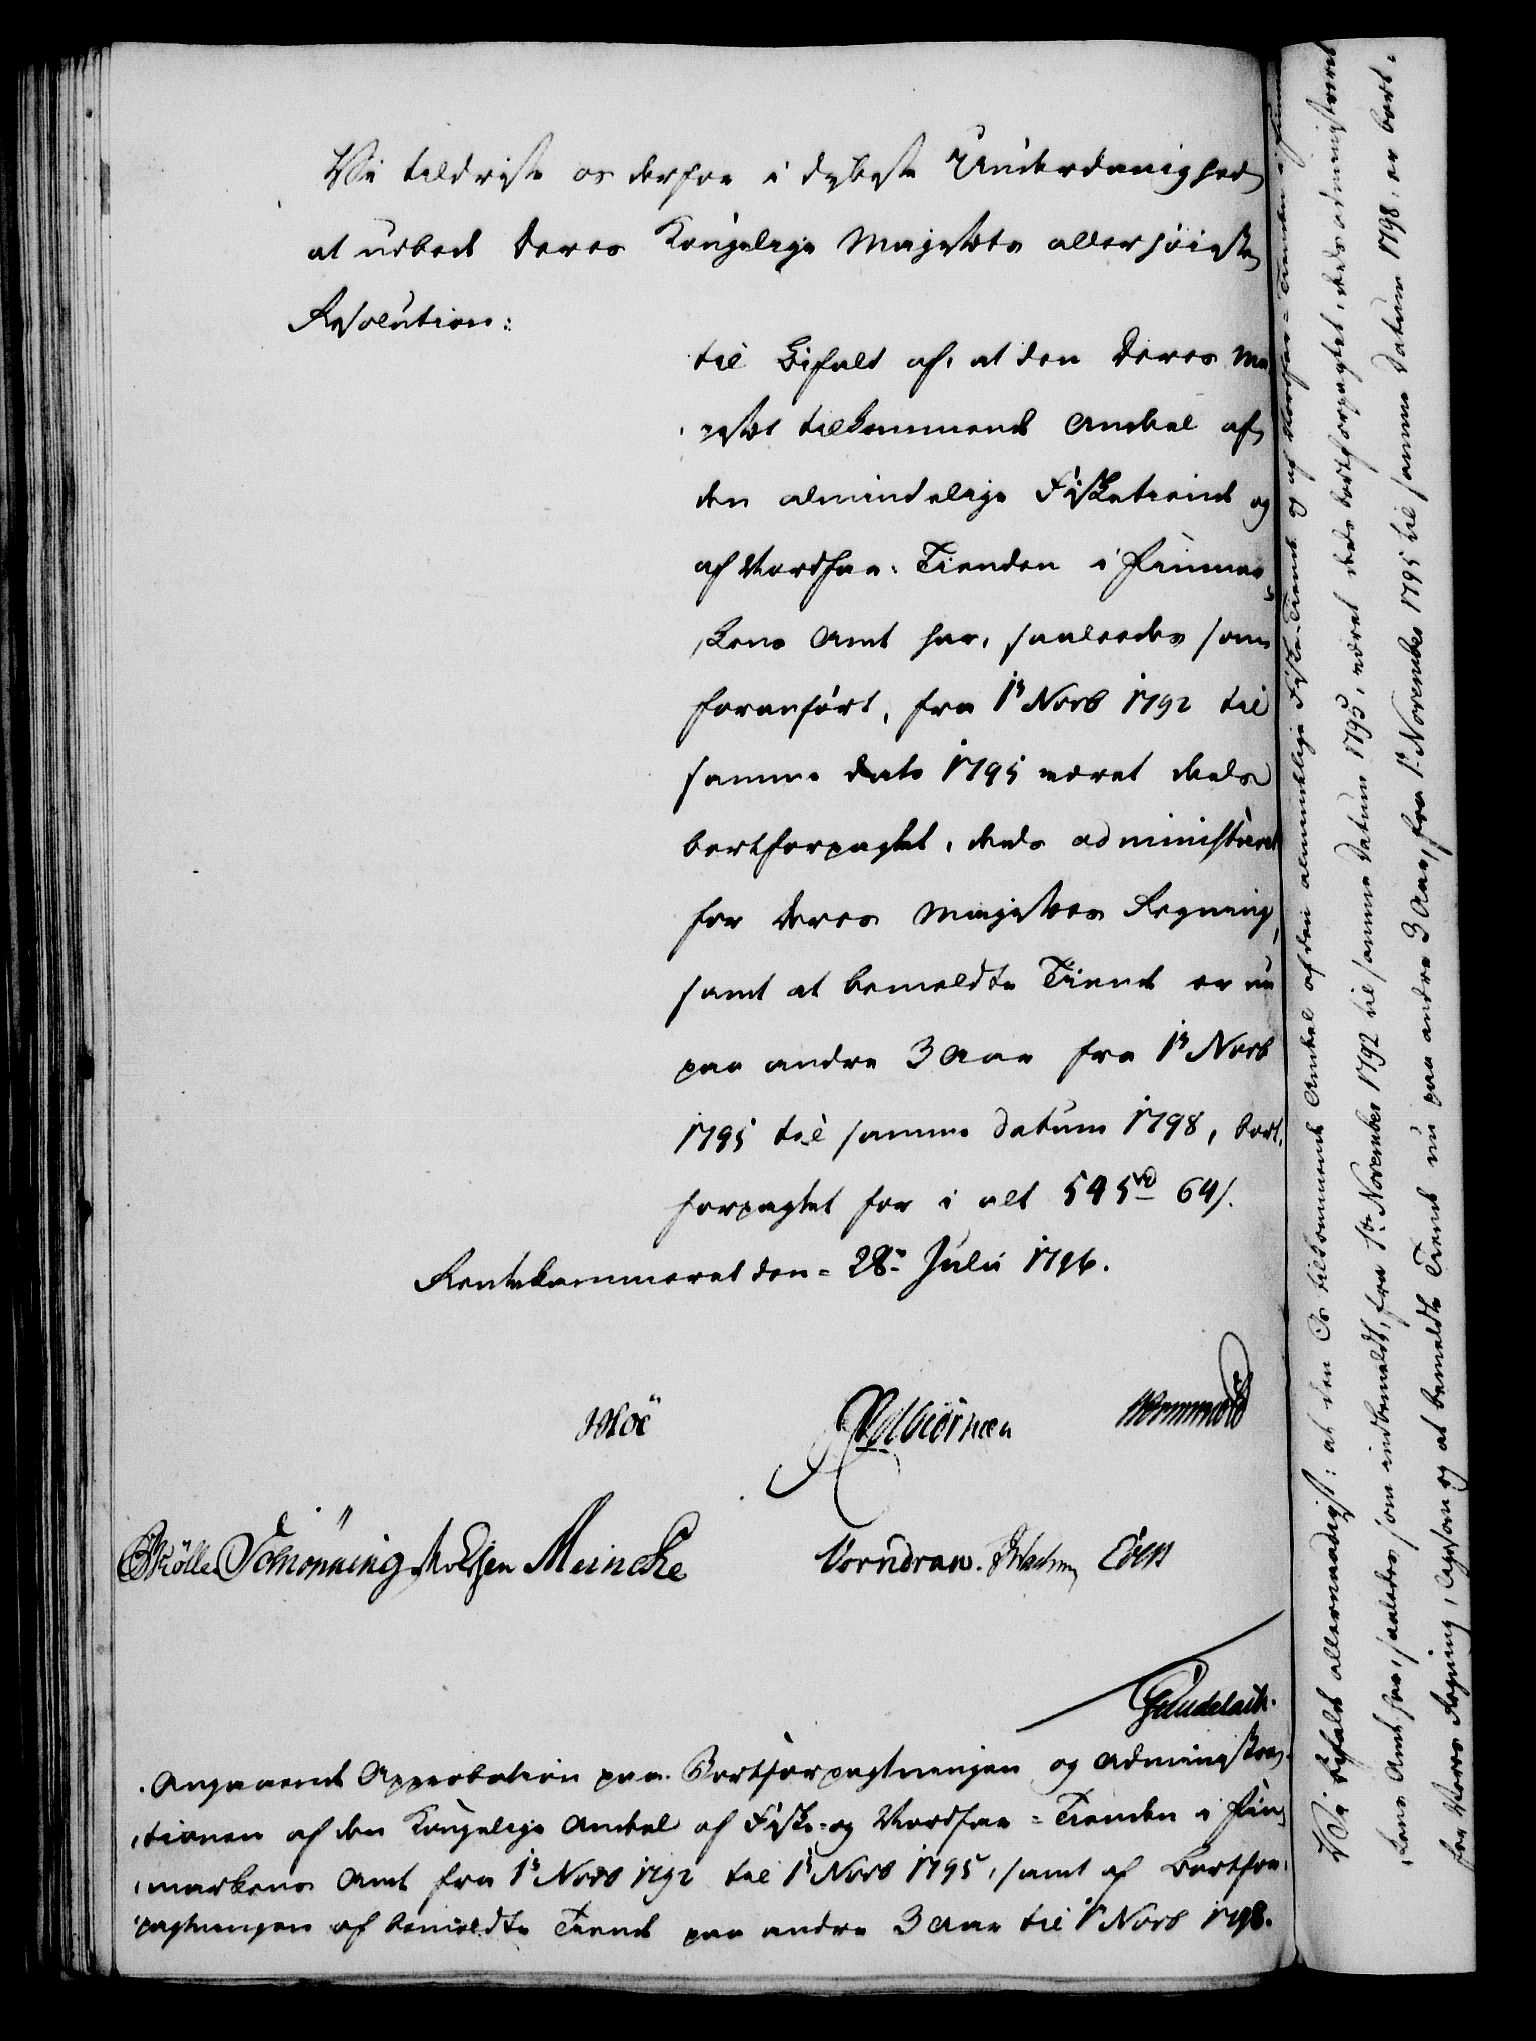 Vi tildriste os derfor i dybeste Underdanighed
at udbede Deres Kongelige Majestæts allerhöieste
Resolution:
til Bifald af, at den Deres Ma
jestæt tilkommende Andeel af
den almindelige Fisketiende og
af Vordhæ-Tienden i Finmar,
,kens Amt har, saaledes som
foranfört, fra 1te Novb 1792 til
samme dato 1795 været deels
bortforpagtet, deels administreret
for Deres Majestæts Regning,
samt at bemeldte Tiende er nu
paa andre 3 Aar fra 1te Novb
1795 til samme datum 1798, bort,
forpagtet for i alt 545rd 64s.
Rentekammeret den 28de Julii 1796.
Hoë
Wormskiold
Skölle Schönning Meincke
Vorndran.
Gundelach.
Angaaende Approbation paa Bortforpagtningen og Administra,
,tionen af den Kongelige Andeel af Fiske- og Vordhæ-Tienden i Fin,
,markens Amt fra 1te Novb 1792 til 1te Novb 1795, samt af Bortfor,
,pagtningen af bemeldte Tiende paa andre 3 Aar til 1te Novb 1798.
Vi bifalde allernaadigst: at den Os tilkommende Andeel af den almindelige Fiske-Tiende og af Vordhæ-Tienden i Finmar
,kens Amt har, saaledes som indbemeldt, fra 1te November 1792 til samme Datum 1795, været deels bortforpagtet, deels administreret
for Vores Regning, ligesom og at bemeldte Tiende nu paa andre 3 Aar, fra 1te November 1795 til samme Datum 1798, er bort,